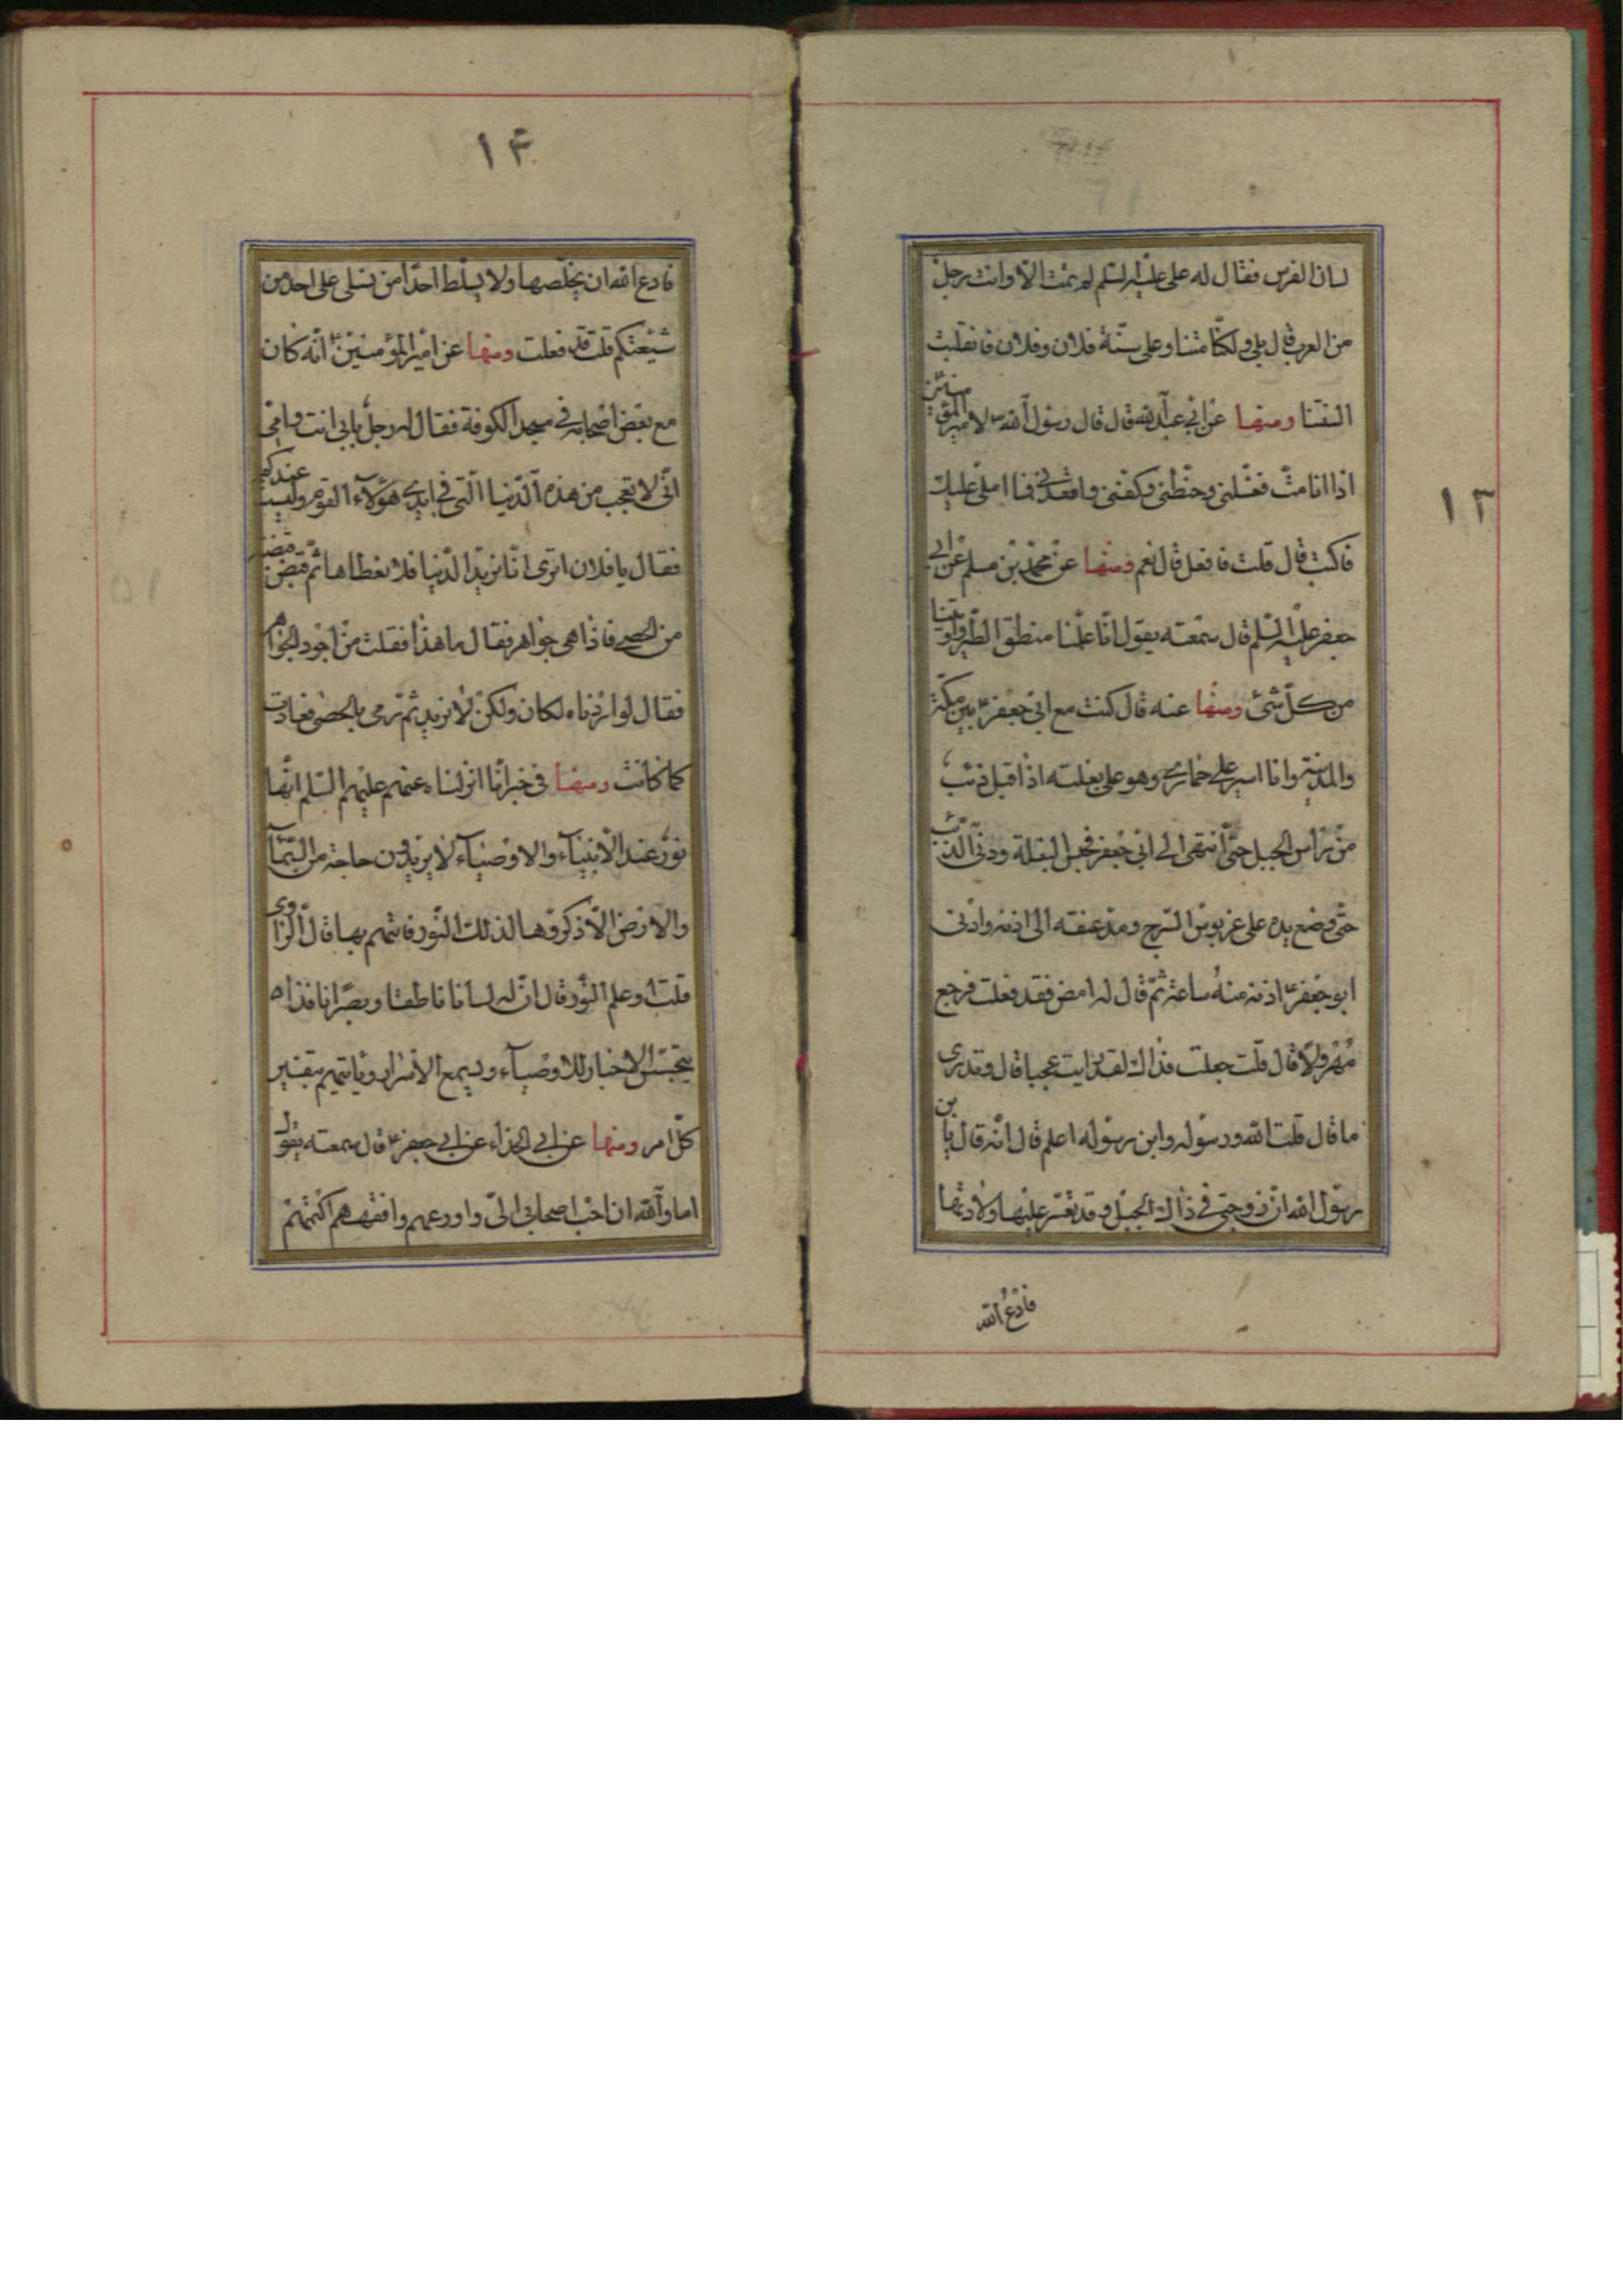 لسان الفرس فقال له علی علیه السلم لم تمت الا وانت رجل
من العرب قال بلی ولکنا متنا وعلی سنة فلان وفلان فانقلبت
السنتنا ومنها عن ابی عبد الله قال قال رسول الله ص لامیر المؤمنین
اذا انا متّ فغسلنی وحنطنی وکفنی واقعدنی فما املی علیک
فاکتب قال قلت فافعل قال نعم ومنها عن محمد بن مسلم عن ابی
جعفر علیه السلم قال سمعته یقول انا علمنا منطق الطیر واوتینا
من کلّ شئ ومنها عنه قال کنت مع ابی جعفر ع بین مکة
والمدینة وانا اسیر علی حماری وهو علی بغلته اذا اقبل ذئب
من راس الجبل حتی انتهی الی ابی جعفر فحبس البغلة ودنی الذئب
حتی وضع یده علی قربوس السرج ومد عنقه الی اذنه وادنی
ابو جعفر ع اذنه منه ساعة ثم قال له امض فقد فعلت فرجع
مهرولا قال قلت جعلت فداک لقد رایت عجبا قال وتدری
ما قال قلت الله ورسوله وابن رسوله اعلم قال انه قال یا بن
رسول الله ان زوجتی فی ذاک الجبل وقد تعسر علیها ولادتها
فادع الله
۱۳
۱۴
فادع الله ان یخلصها ولا یسلط احدا من نسلی علی احد من
شیعتکم قلت قد فعلت ومنها عن امیر المؤمنین ع انه کان
مع بعض اصحابه فی مسجد الکوفة فقال له رجل بابی انت وامی
انی لاتعجب من هذه الدنیا التی فی ایدی هؤلاء القوم ولیست عندکم
فقال یا فلان اتری انا نرید الدنیا فلا نعطاها ثم قبض قبضة
من الحصی فاذا هی جواهر فقال ما هذا فقلت من اجود الجواهر
فقال لو اردناه لکان ولکن لا نرید ثم رمی بالحصی فعادت
کما کانت ومنها فی خبر انا انزلناه عنهم علیهم السلم انها
نور عند الانبیاء والاوصیاء لا یریدون حاجة من السماء
والارض الا ذکروها لذلک النور فاتیهم بها قال الراوی
قلت او علم النور قال ان له لسانا ناطقا وبصرا نافذا
یتجسس الاخبار للاوصیاء ویسمع الاسرار ویاتیهم بتفسیر
کلّ امر ومنها عن ابی الحذاء عن ابی جعفر ع قال سمعته یقول
اما والله ان احب اصحابی الی واورعهم وافقههم اکتمهم